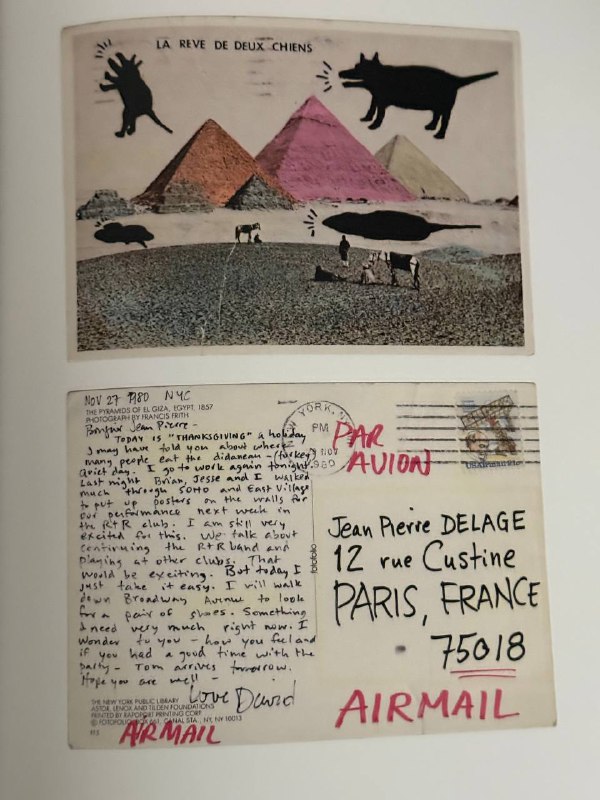 LA REVE DE DEUX CHIENS
NOV 27 1980 NYC
THE PYRAMIDS OF EL GIZA, EGYPT, 1857
PHOTOGRAPH BY FRANCIS FRITH
Bonjour Jean Pierre -
TODAY IS "THANKSGIVING" a holiday
I may have told you about where
many people eat the didanean - (turkey)
quiet day. I go to work again tonight.
Last night Brian, Jesse and I walked
much through SOHO and East Village
to put up posters on the walls for
our performance next week in
the R+R club. I am still very
excited for this. We talk about
continuing the R+R band and
playing at other clubs. That
would be exciting. But today I
just take it easy. I will walk
down Broadway Avenue to look
for a pair of shoes. Something
I need very much right now. I
wonder to you - how you feel and
if you had a good time with the
party - Tom arrives tomorrow.
Hope you are well -
Love David
THE NEW YORK PUBLIC LIBRARY
ASTOR, LENOX AND TILDEN FOUNDATIONS
PRINTED BY RAPOPORT PRINTING CORP.
© FOTOFOLIO BOX 661, CANAL STA., NY, NY 10013
AIRMAIL
fotofolio
YORK, N
PM
NOV
1980
PAR
AVION
USAirmail
Jean Pierre DELAGE
12 rue Custine
PARIS, FRANCE
75018
AIRMAIL